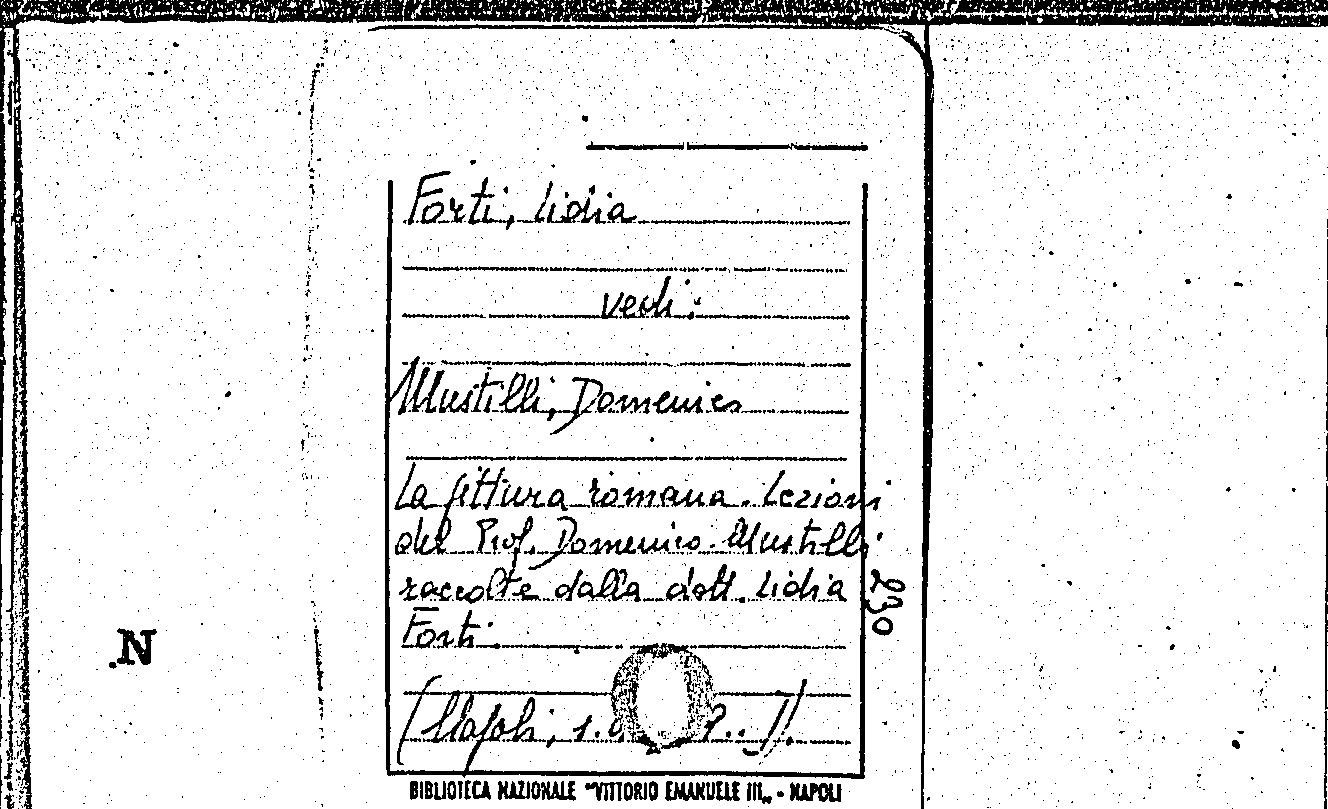 Forti, Lidia
vedi:
Mustilli, Domenico
La pittura romana. Lezioni
del Prof. Domenico Mustilli
raccolte dalla dott. Lidia
Forti.
(Napoli, s.
230
N.
BIBLIOTECA NAZIONALE "VITTORIO EMANUELE III„ - NAPOLI